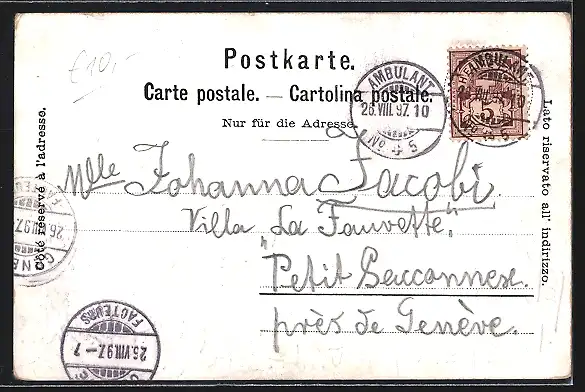 £10,-
Postkarte.
Carte postale. — Cartolina postale.
Nur für die Adresse.
Côté réservé à l'adresse.
Lato riservato all' indirizzo.
AMBULANT
26.VIII.97.10
No 5
AMBULANT
5
No 5
Mlle Johanna Jacobi
Villa „La Fauvette"
Petit Saconnex
près de Genève.
26.VIII.97
FACTEURS
26.VIII.97-7